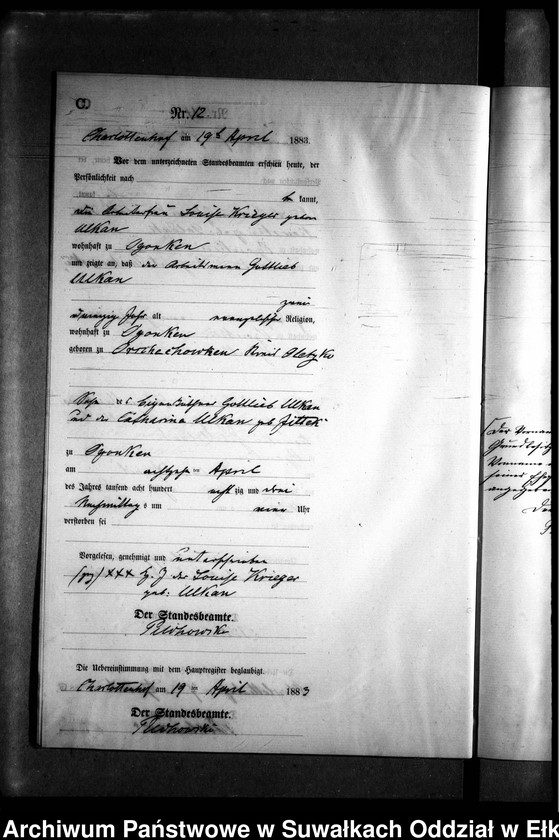 C.
Nr. 12
Charlottenhof am 19ten April 1883.
Vor dem unterzeichneten Standesbeamten erschien heute, der
Persönlichkeit nach
be kannt,
die Arbeiterfrau Louise Krieger geborn
Ulkan
wohnhaft zu Ogonken
und zeigte an, daß der Arbeitsmann Gottlieb
Ulkan
zwei
zwanzig Jahr alt evangelischer Religion,
wohnhaft zu Ogonken
geboren zu Orschechowken Kreis Oletzko
Sohn des Eigenkäthner Gottlieb Ulkan
und der Catharina Ulkan geb Jittek
zu Ogonken
am achtzehn ten April
des Jahres tausend acht hundert acht zig und drei
Nachmittag s um Uhr
verstorben sei
Vorgelesen, genehmigt und unterschrieben
(gz) XXX Hz. J der Louise Krieger
geb: Ulkan
Der Standesbeamte.
Die Uebereinstimmung mit dem Hauptregister beglaubigt.
Charlottenhof am 19 ten April 1883
Der Standesbeamte.
Der Vorname
Grundbesitzer
Vorname
seiner
angegeben
Archiwum Państwowe w Suwałkach Oddział w Ełk